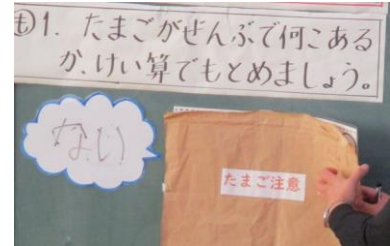 も 1. たまごがぜんぶで何こある
か、けい算でもとめましょう。
ない
たまご注意